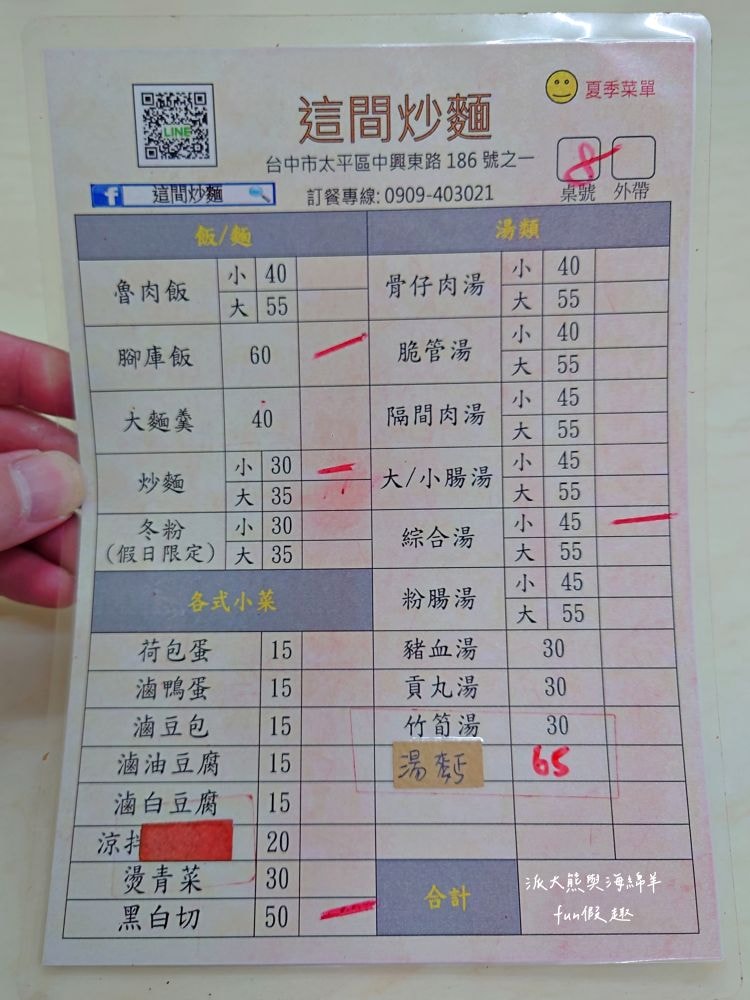 夏季菜單
LINE
這間炒麵
台中市太平區中興東路 186 號之一
8
f 這間炒麵
訂餐專線: 0909-403021
桌號 外帶
飯/麵 湯類
魯肉飯 小 40 骨仔肉湯 小 40
大 55 大 55
腳庫飯 60 脆管湯 小 40
大 55
大麵羹 40 隔間肉湯 小 45
大 55
炒麵 小 30 大/小腸湯 小 45
大 35 大 55
冬粉 小 30 綜合湯 小 45
(假日限定) 大 35 大 55
各式小菜 粉腸湯 小 45
大 55
荷包蛋 15 豬血湯 30
滷鴨蛋 15 貢丸湯 30
滷豆包 15 竹筍湯 30
滷油豆腐 15 湯麵 65
滷白豆腐 15
涼拌 20
燙青菜 30 合計
黑白切 50
派大熊與海綿羊
fun假趣